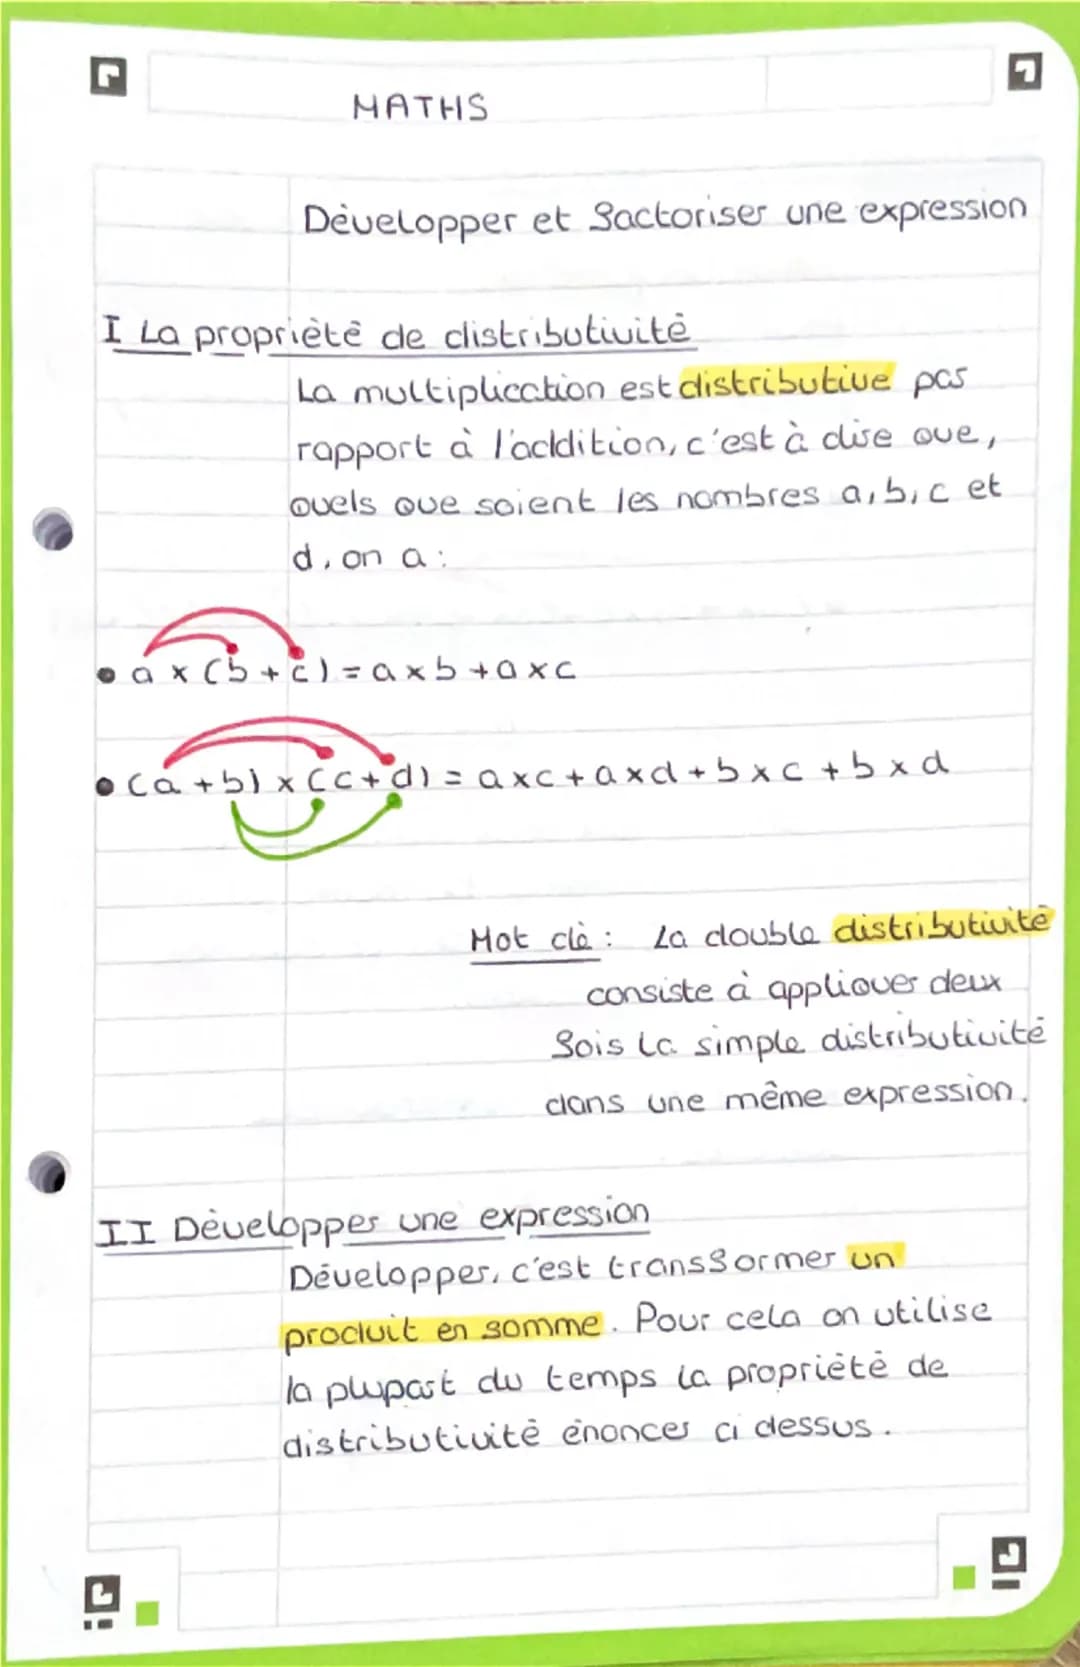 MATHS
Développer et factoriser une expression
I La propriété de distributivité
La multiplication est distributive par
rapport à l'addition, c'est à dire que,
quels que soient les nombres a, b, c et
d, on a :
• a x (b + c) = a x b + a x c
• (a + b) x (c + d) = a x c + a x d + b x c + b x d
Mot clé : La double distributivité
consiste à appliquer deux
fois la simple distributivité
dans une même expression.
II Développer une expression
Développer, c'est transformer un
produit en somme. Pour cela on utilise
la plupart du temps la propriété de
distributivité énoncer ci dessus.